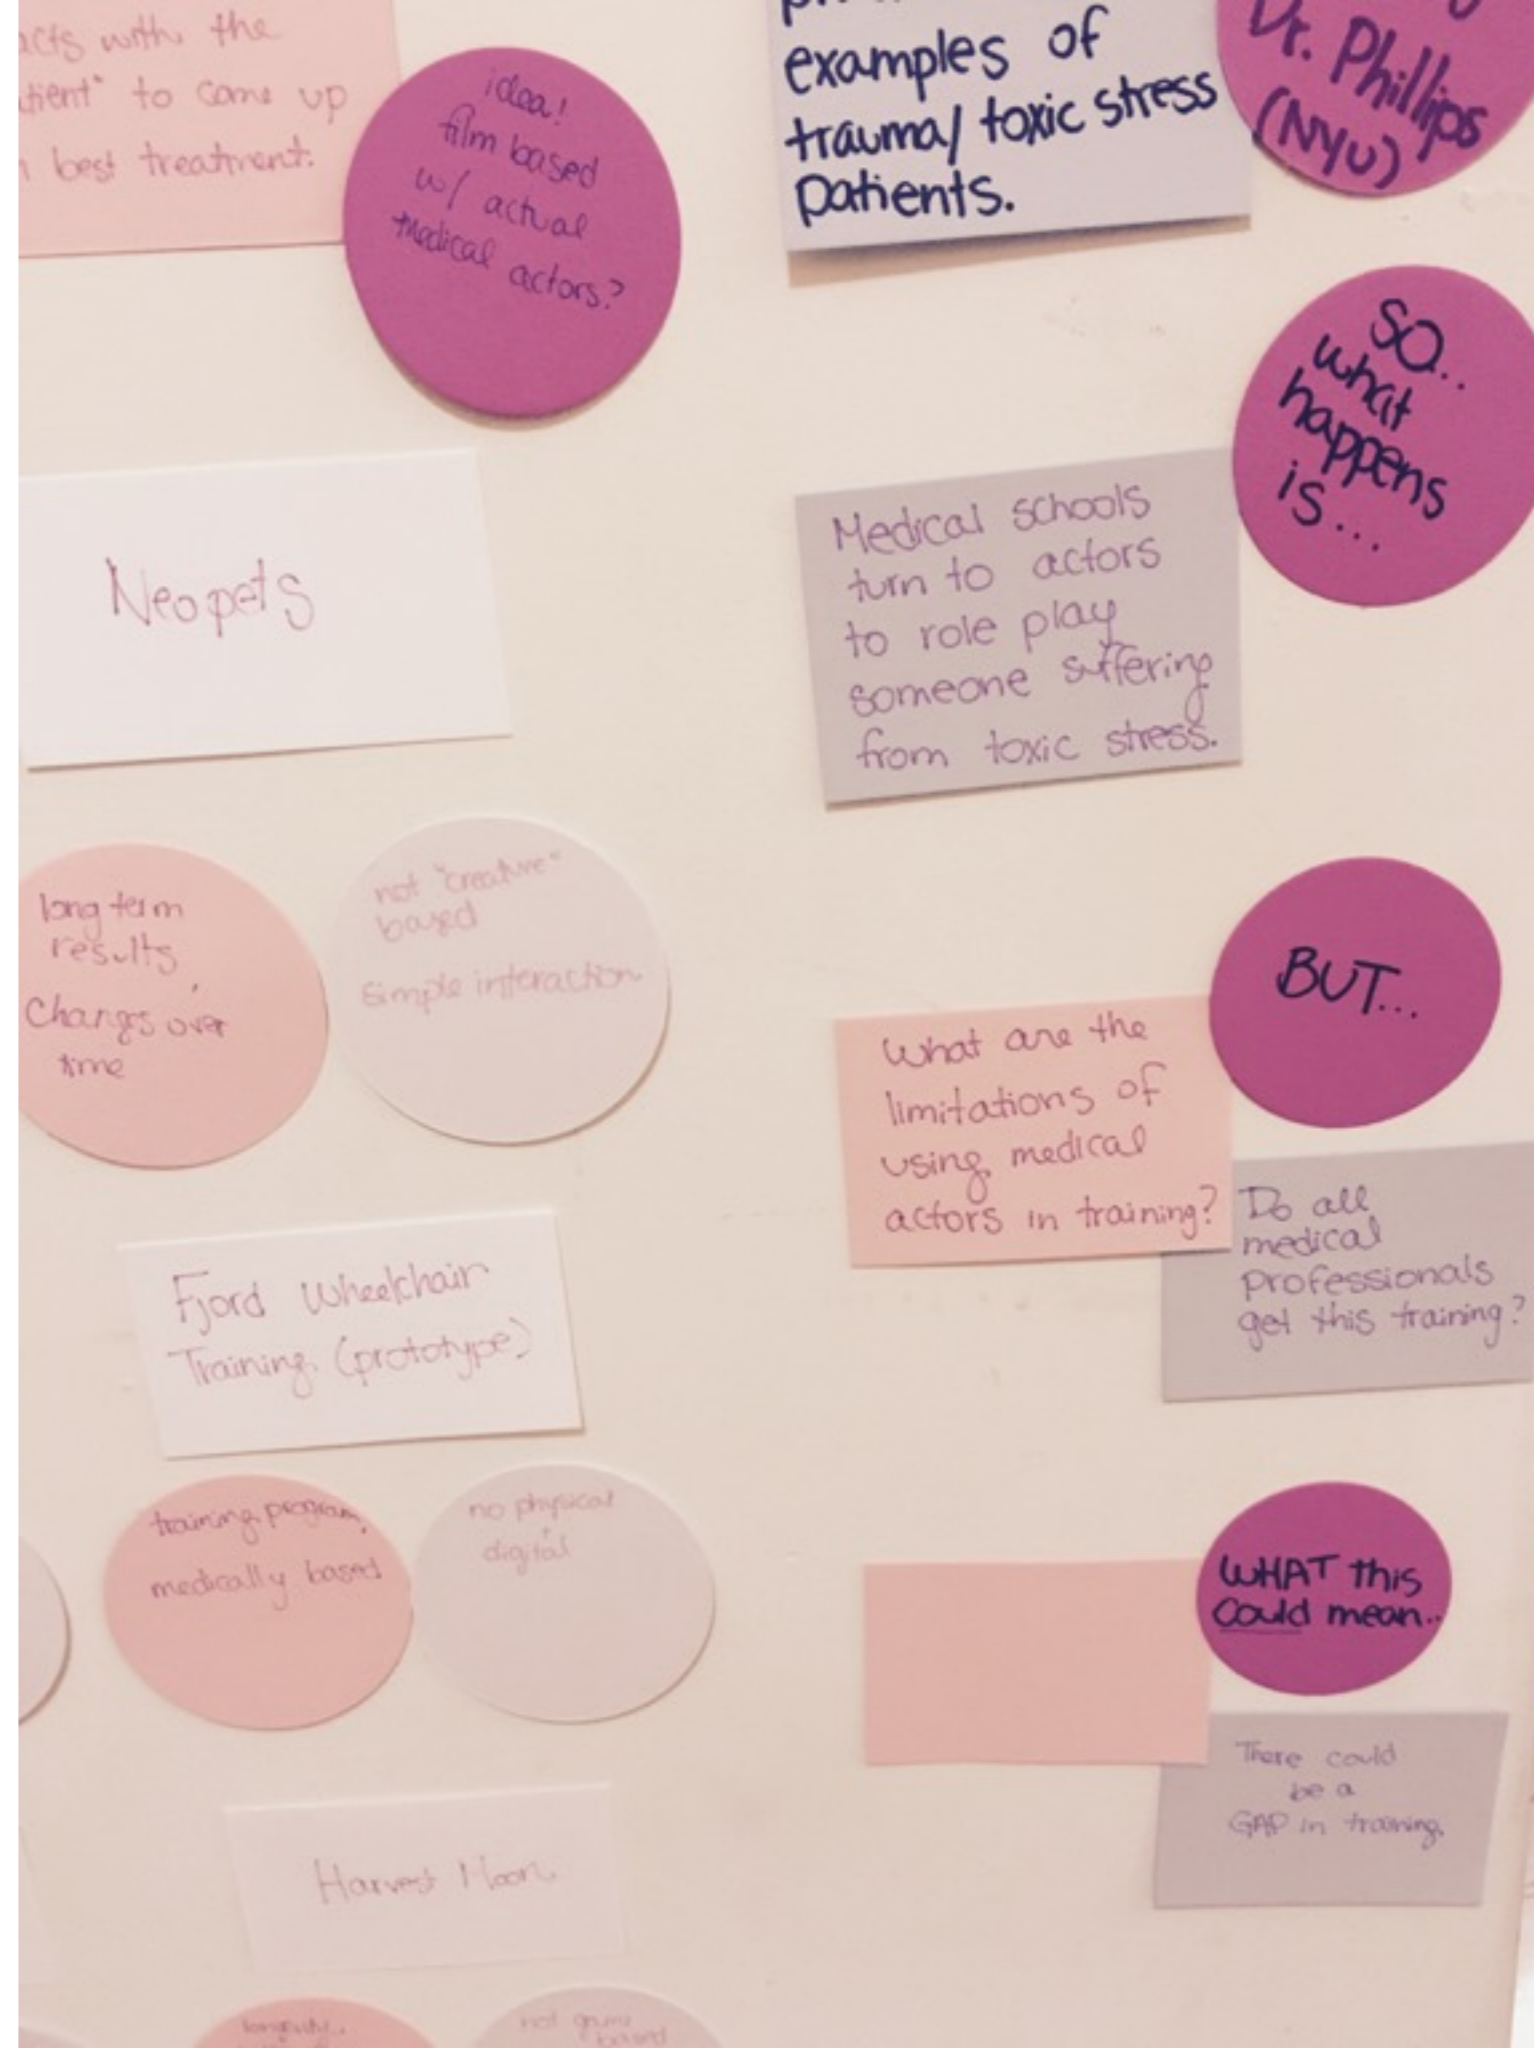 acts with the
tient" to come up
best treatment.
idea!
film based
w/ actual
medical actors?
Neopets
long term
results
Changes over
time
not "creature"
based
simple interaction
Fjord Wheelchair
Training (prototype)
training program,
medically based
no physical
digital
Harvest Moon
longevity
not game
based
examples of
trauma/ toxic stress
patients.
Dr. Phillips
(NYU)
SO..
what
happens
is...
Medical schools
turn to actors
to role play
someone suffering
from toxic stress.
BUT...
What are the
limitations of
using medical
actors in training?
Do all
medical
professionals
get this training?
WHAT this
Could mean..
There could
be a
GAP in training.